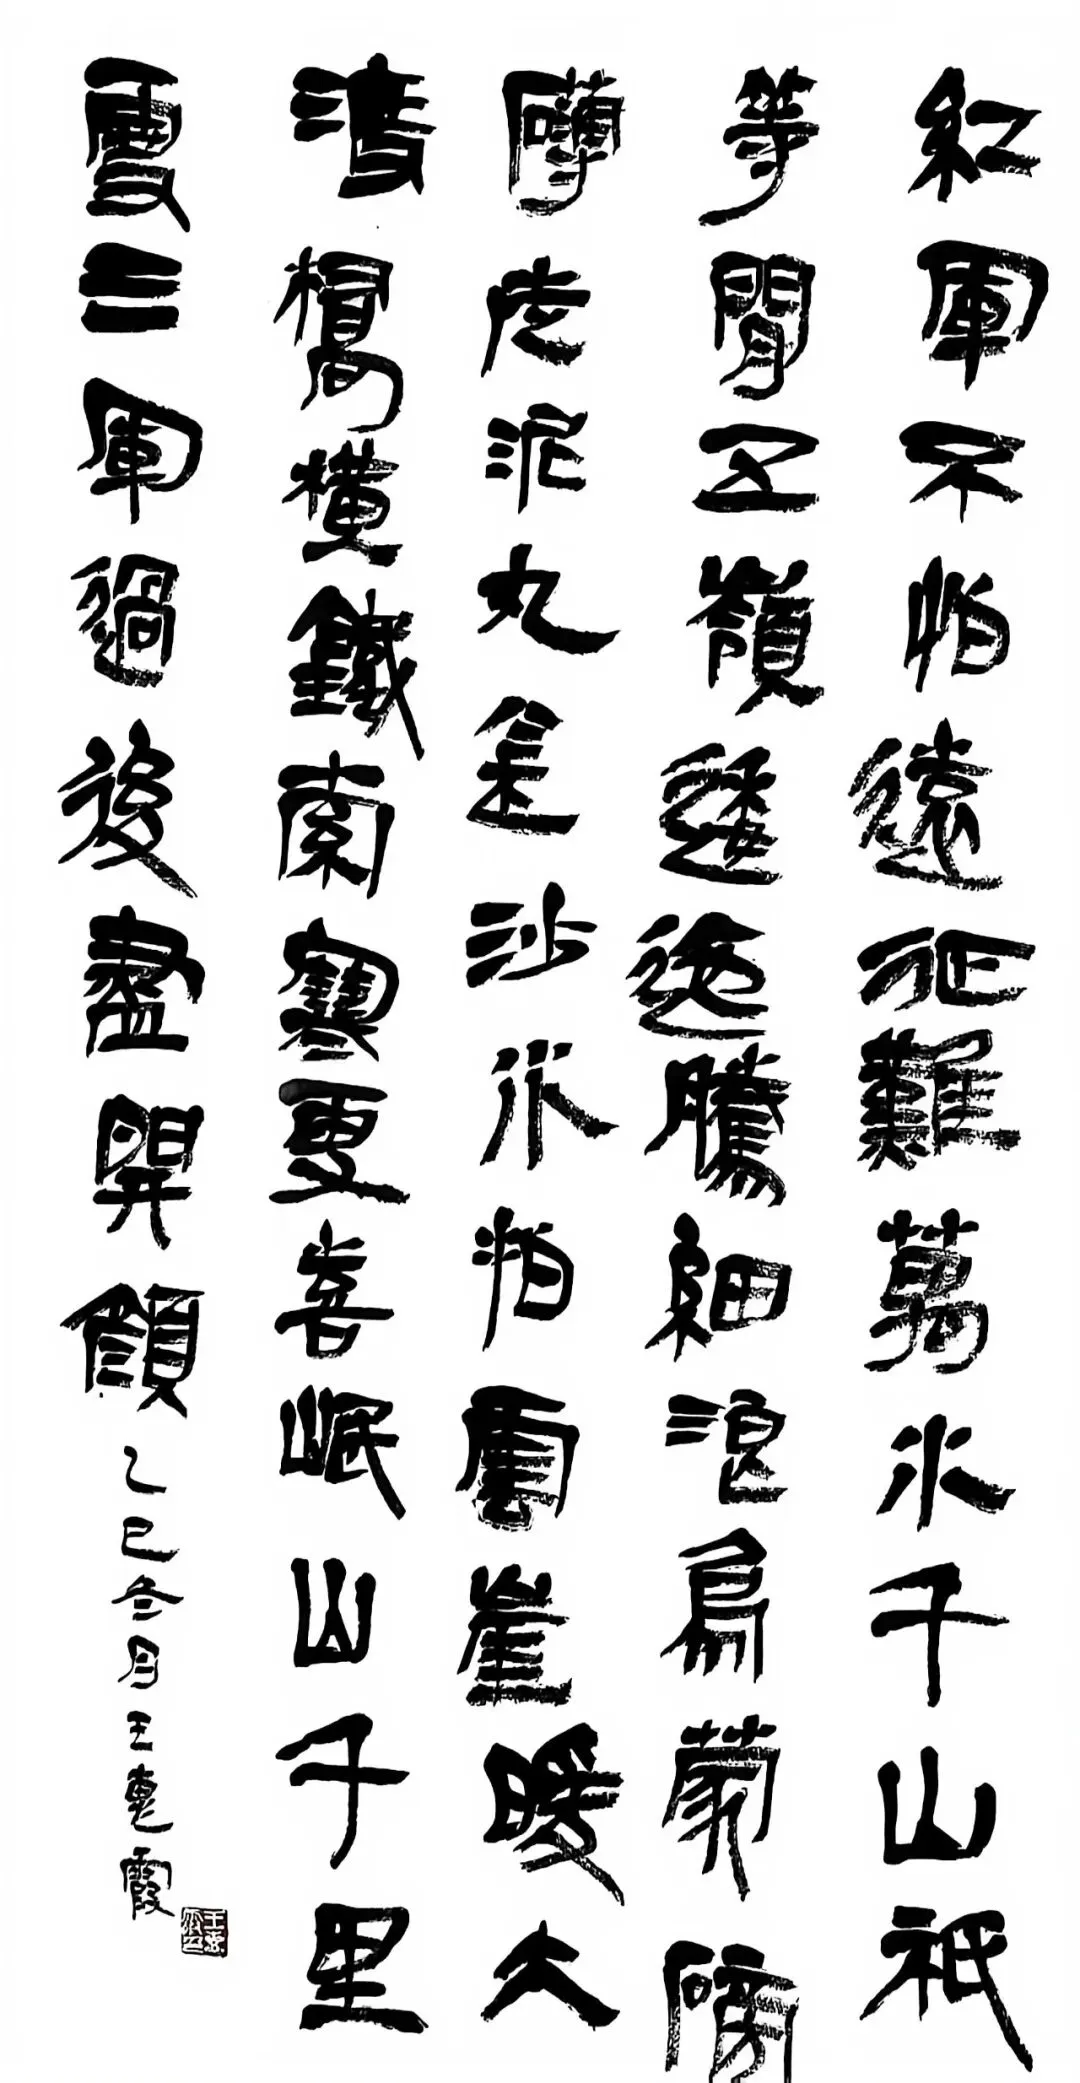 紅軍不怕遠征難萬水千山祇
等閒五嶺逶迤騰細浪烏蒙磅
礴走泥丸金沙水拍雲崖暖大
渡橋橫鐵索寒更喜岷山千里
雪三軍過後盡開顏
乙巳冬月王惠霞